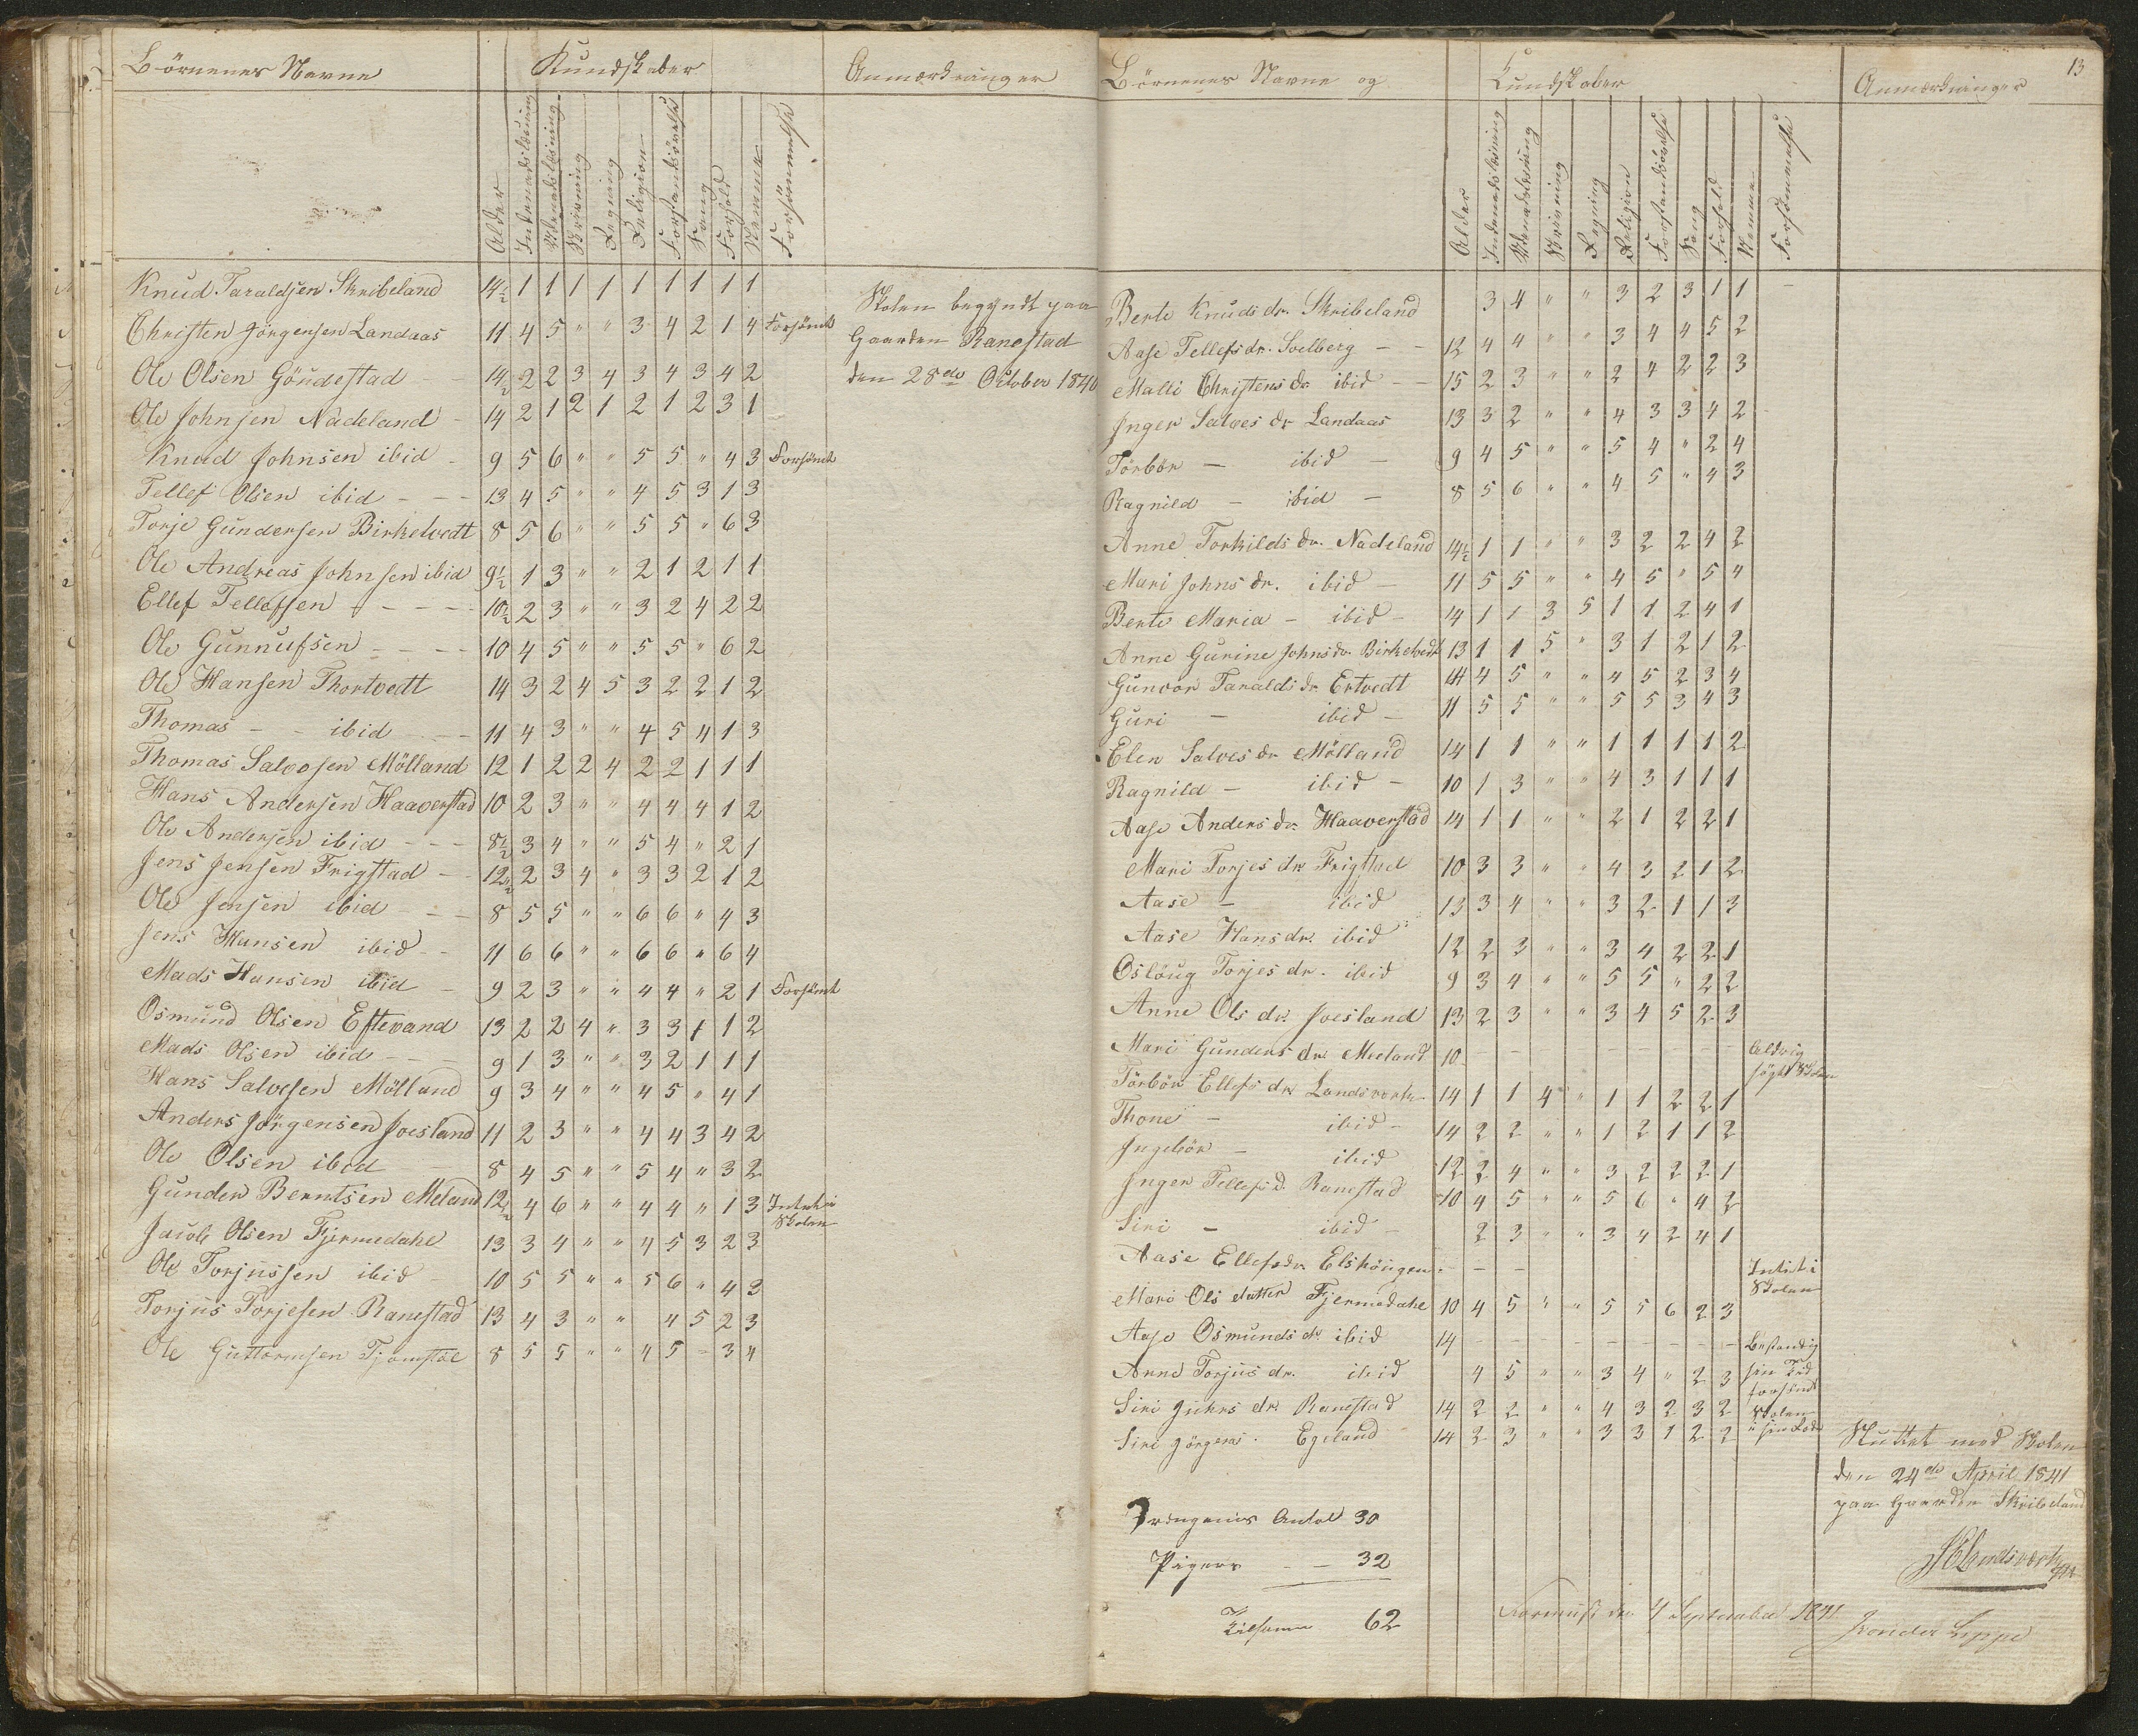 Börnenes Navne Kundskaber Anmærkninger
Alder Indenadslæsning Udenadslæsning Skrivning Regning Religion Forstandsövelse Sang Forhold Nemme Forsömmelse
Knud Taraldsen Skribeland 14½ 1 1 1 1 1 1 1 1 1
Christen Jörgensen Landaas 11 4 5 " " 3 4 2 1 4 Forsömt
Ole Olsen Göudestad - 14½ 2 2 3 4 3 4 3 4 2
Ole Johnsen Nädeland - 14 2 1 2 1 2 1 2 3 1
Knud Johnsen ibid - 9 5 6 " " 5 5 " 4 3 Forsömt
Tellef Olsen ibid - - - 13 4 5 " " 4 5 3 1 3
Torje Gundersen Birketvedt 8 5 6 " " 5 5 " 6 3
Ole Andreas Johnsen ibid 9½ 1 3 " " 2 1 2 1 1
Ellef Tellefsen - - - - 10½ 2 3 " " 3 2 4 2 2
Ole Gunnufsen - - - - 10 4 5 " " 5 5 " 6 2
Ole Hansen Thortvedt 14 3 2 4 5 3 2 2 1 2
Thomas - - ibid - - 11 4 3 " " 4 5 4 1 3
Thomas Salvesen Mölland 12 1 2 2 4 2 2 1 1 1
Hans Andersen Haaverstad 10 2 3 " " 4 4 4 1 2
Ole Andersen ibid - - - 8½ 3 4 " " 5 4 " 2 1
Jens Jensen Frigstad - - 12½ 2 3 4 " 3 3 2 1 2
Ole Jensen ibid - - - 8 5 5 " " 6 6 " 4 3
Jens Hansen ibid - - 11 6 6 " " 6 6 " 6 4
Mads Hansen ibid - 9 2 3 " " 4 4 " 2 1 Forsömt
Osmund Olsen Eftevand 13 2 2 4 " 3 3 1 1 2
Mads Olsen ibid - - 9 1 3 " " 3 2 1 1 1
Hans Salvesen Mölland 9 3 4 " " 4 5 " 4 1
Anders Jörgensen Joesland 11 2 3 " " 4 4 3 4 2
Ole Olsen ibid - - 8 4 5 " " 5 4 " 3 2
Gunder Berntsen Meland 12½ 4 6 " " 4 4 " 1 3 Intet i
Skolen
Jacob Olsen Fjermedahl 13 3 4 " " 4 5 3 2 3
Ole Torjussen ibid - 10 5 5 " " 5 6 " 4 3
Torjus Torjesen Ranestad 13 4 3 " " 4 5 2 3
Ole Guttormsen Tjomstöl 8 5 5 " " 4 5 - 3 4
Skolen begyndt paa
Gaarden Ranestad
den 28de October 1840
13
Börnenes Navne og Kundskaber Anmærkninger
Alder Indenadslæsning Udenadslæsning Skrivning Regning Religion Forstandsövelse Sang Forhold Nemme Forsömmelse
Berte Knuds dr. Skribeland 3 4 " " 3 2 3 1 1 -
Aase Tellefs dr. Soelberg - - 12 4 4 " " 3 4 4 5 2
Malli Christens dr ibid - - 15 2 3 " " 2 4 2 2 3
Inger Salves dr Landaas 13 3 2 " " 4 3 3 4 2
Törbör - ibid - 9 4 5 " " 5 4 " 2 4
Ragnild - ibid - 8 5 6 " " 4 5 " 4 3
Anne Torkilds dr. Nädeland 14½ 1 1 " " 3 2 2 4 2
Mari Johns dr. ibid - 11 5 5 " " 4 5 " 5 4
Berte Maria - ibid - 14 1 1 3 5 1 1 2 4 1
Anne Gurine Johnsdr. Birketvedt 13 1 1 5 " 3 1 2 1 2
Guncor Taralds dr Ertvedt 14 4 5 " " 4 5 2 3 4
Guri - ibid - 11 5 5 " " 5 5 3 4 3
Elen Salves dr Mölland 14 1 1 " " 1 1 1 1 2
Ragnild - ibid - 10 1 3 " " 4 3 1 1 1
Aase Anders dr. Haaverstad 14 1 1 " " 2 1 2 2 1
Mari Torjes dr Frigstad 10 3 3 " " 4 3 2 1 2
Aase - ibid 13 3 4 " " 3 2 1 1 3
Aase Hans dr. ibid 12 2 3 " " 3 4 2 2 1
Oslöug Torjes dr. ibid 9 3 4 " " 5 5 " 2 2
Anne Ols dr. Joesland 13 2 3 " " 3 4 5 2 3
Mari Gunders dr. Meeland 10 - - - - - - - - Aldrig
sögt Skolen
Törbör Ellefs dr. Landsverk 14 1 1 4 " 1 1 2 2 1
Thone - ibid - 14 2 2 " " 1 2 1 1 2
Ingebör - ibid 12 2 4 " " 3 2 2 2 1
Inger Tellefs d. Ranestad 10 4 5 " " 5 6 " 4 2
Siri - ibid - 2 3 " " 3 4 2 4 1
Aase Ellefsdr. Elshöugen - - - Intet i
Skolen
Mari Ols datter Fjermedahl 10 4 5 " " 5 5 6 2 3
Aase Osmunds dr. ibid 14 - - - - - - - - - Bestandig
Anne Torjus dr. ibid 4 5 " " 3 4 " 2 3 sin Tid
forsömt
Siri Guhrs dr. Ranestad 14 2 2 " " 4 3 2 3 2 Skolen
Siri Jörgens. Egeland 14 2 3 " " 3 3 1 2 2
Sluttet med Skolen
den 24de April 1841
paa Gaarden Skribeland
Drengenes Antal 30
Pigers - - 32
Tilsamen 62
Landsverk
den 4 September 1841